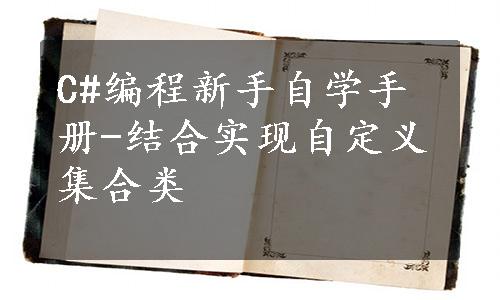 C#编程新手自学手
册-结合实现自定义
集合类